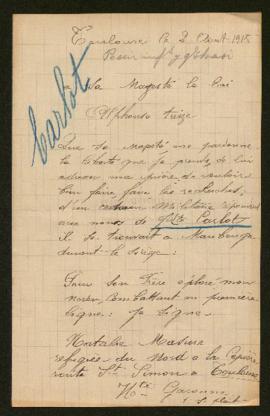 Toulouse le 2 Aout 1915
Carlot
Sa Majesté le Roi
Alphonse treize
Que sa majesté me pardonne
la liberté que je prends de lui
adresser une prière de vouloir
bien faire faire les recherches
d'un Militaire répondant
aux noms de Carlot
Il se trouvait à Maubeuge
durant le siège:
Pour son Frère éploré mon
combattant en première
ligne: je signe.
Natalie
refugiée du Nord a la
route St Simon a Toulouse
Hte Garonne